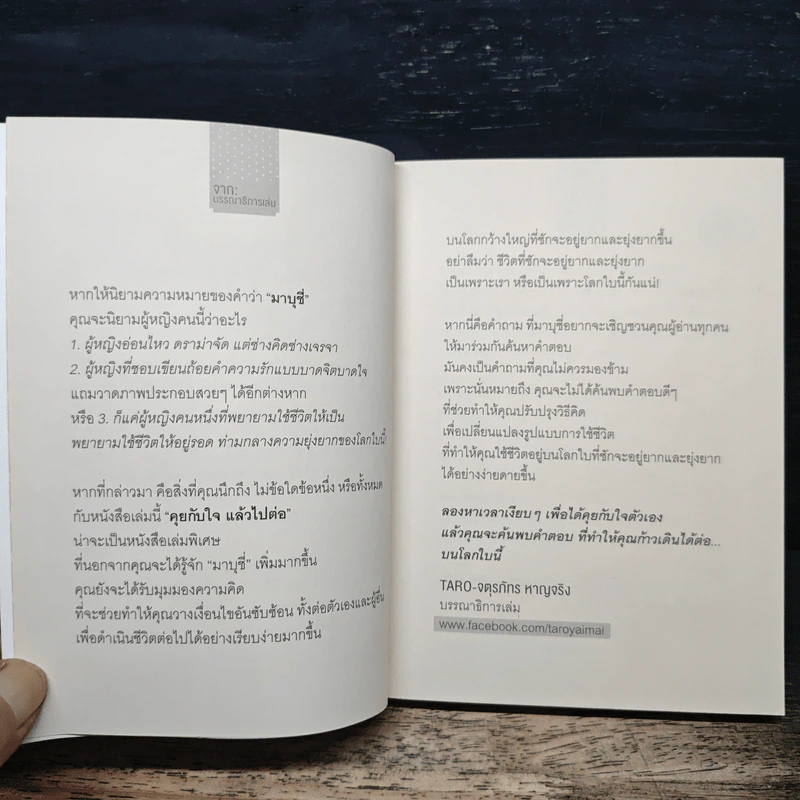 จาก:
บรรณาธิการเล่ม
หากให้นิยามความหมายของคำว่า "มาบุชี่"
คุณจะนิยามผู้หญิงคนนี้ว่าอะไร
1. ผู้หญิงอ่อนไหว ดราม่าจัด แต่ช่างคิดช่างเจรจา
2. ผู้หญิงที่ชอบเขียนถ้อยคำความรักแบบบาดจิตบาดใจ
แถมวาดภาพประกอบสวยๆ ได้อีกต่างหาก
หรือ 3. ก็แค่ผู้หญิงคนหนึ่งที่พยายามใช้ชีวิตให้เป็น
พยายามใช้ชีวิตให้อยู่รอด ท่ามกลางความยุ่งยากของโลกใบนี้
หากที่กล่าวมา คือสิ่งที่คุณนึกถึง ไม่ข้อใดข้อหนึ่ง หรือทั้งหมด
กับหนังสือเล่มนี้ "คุยกับใจ แล้วไปต่อ"
น่าจะเป็นหนังสือเล่มพิเศษ
ที่นอกจากคุณจะได้รู้จัก "มาบุชี่" เพิ่มมากขึ้น
คุณยังจะได้รับมุมมองความคิด
ที่จะช่วยทำให้คุณวางเงื่อนไขอันซับซ้อน ทั้งต่อตัวเองและผู้อื่น
เพื่อดำเนินชีวิตต่อไปได้อย่างเรียบง่ายมากขึ้น
บนโลกกว้างใหญ่ที่ชักจะอยู่ยากและยุ่งยากขึ้น
อย่าลืมว่า ชีวิตที่ชักจะอยู่ยากและยุ่งยาก
เป็นเพราะเรา หรือเป็นเพราะโลกใบนี้กันแน่!
หากนี่คือคำถาม ที่มาบุชี่อยากจะเชิญชวนคุณผู้อ่านทุกคน
ให้มาร่วมกันค้นหาคำตอบ
มันคงเป็นคำถามที่คุณไม่ควรมองข้าม
เพราะนั่นหมายถึง คุณจะไม่ได้ค้นพบคำตอบดีๆ
ที่ช่วยทำให้คุณปรับปรุงวิธีคิด
เพื่อเปลี่ยนแปลงรูปแบบการใช้ชีวิต
ที่ทำให้คุณใช้ชีวิตอยู่บนโลกใบที่ชักจะอยู่ยากและยุ่งยาก
ได้อย่างง่ายดายขึ้น
ลองหาเวลาเงียบๆ เพื่อได้คุยกับใจตัวเอง
แล้วคุณจะค้นพบคำตอบ ที่ทำให้คุณก้าวเดินได้ต่อ...
บนโลกใบนี้
TARO-จตุรภัทร หาญจริง
บรรณาธิการเล่ม
www.facebook.com/taroyaimai